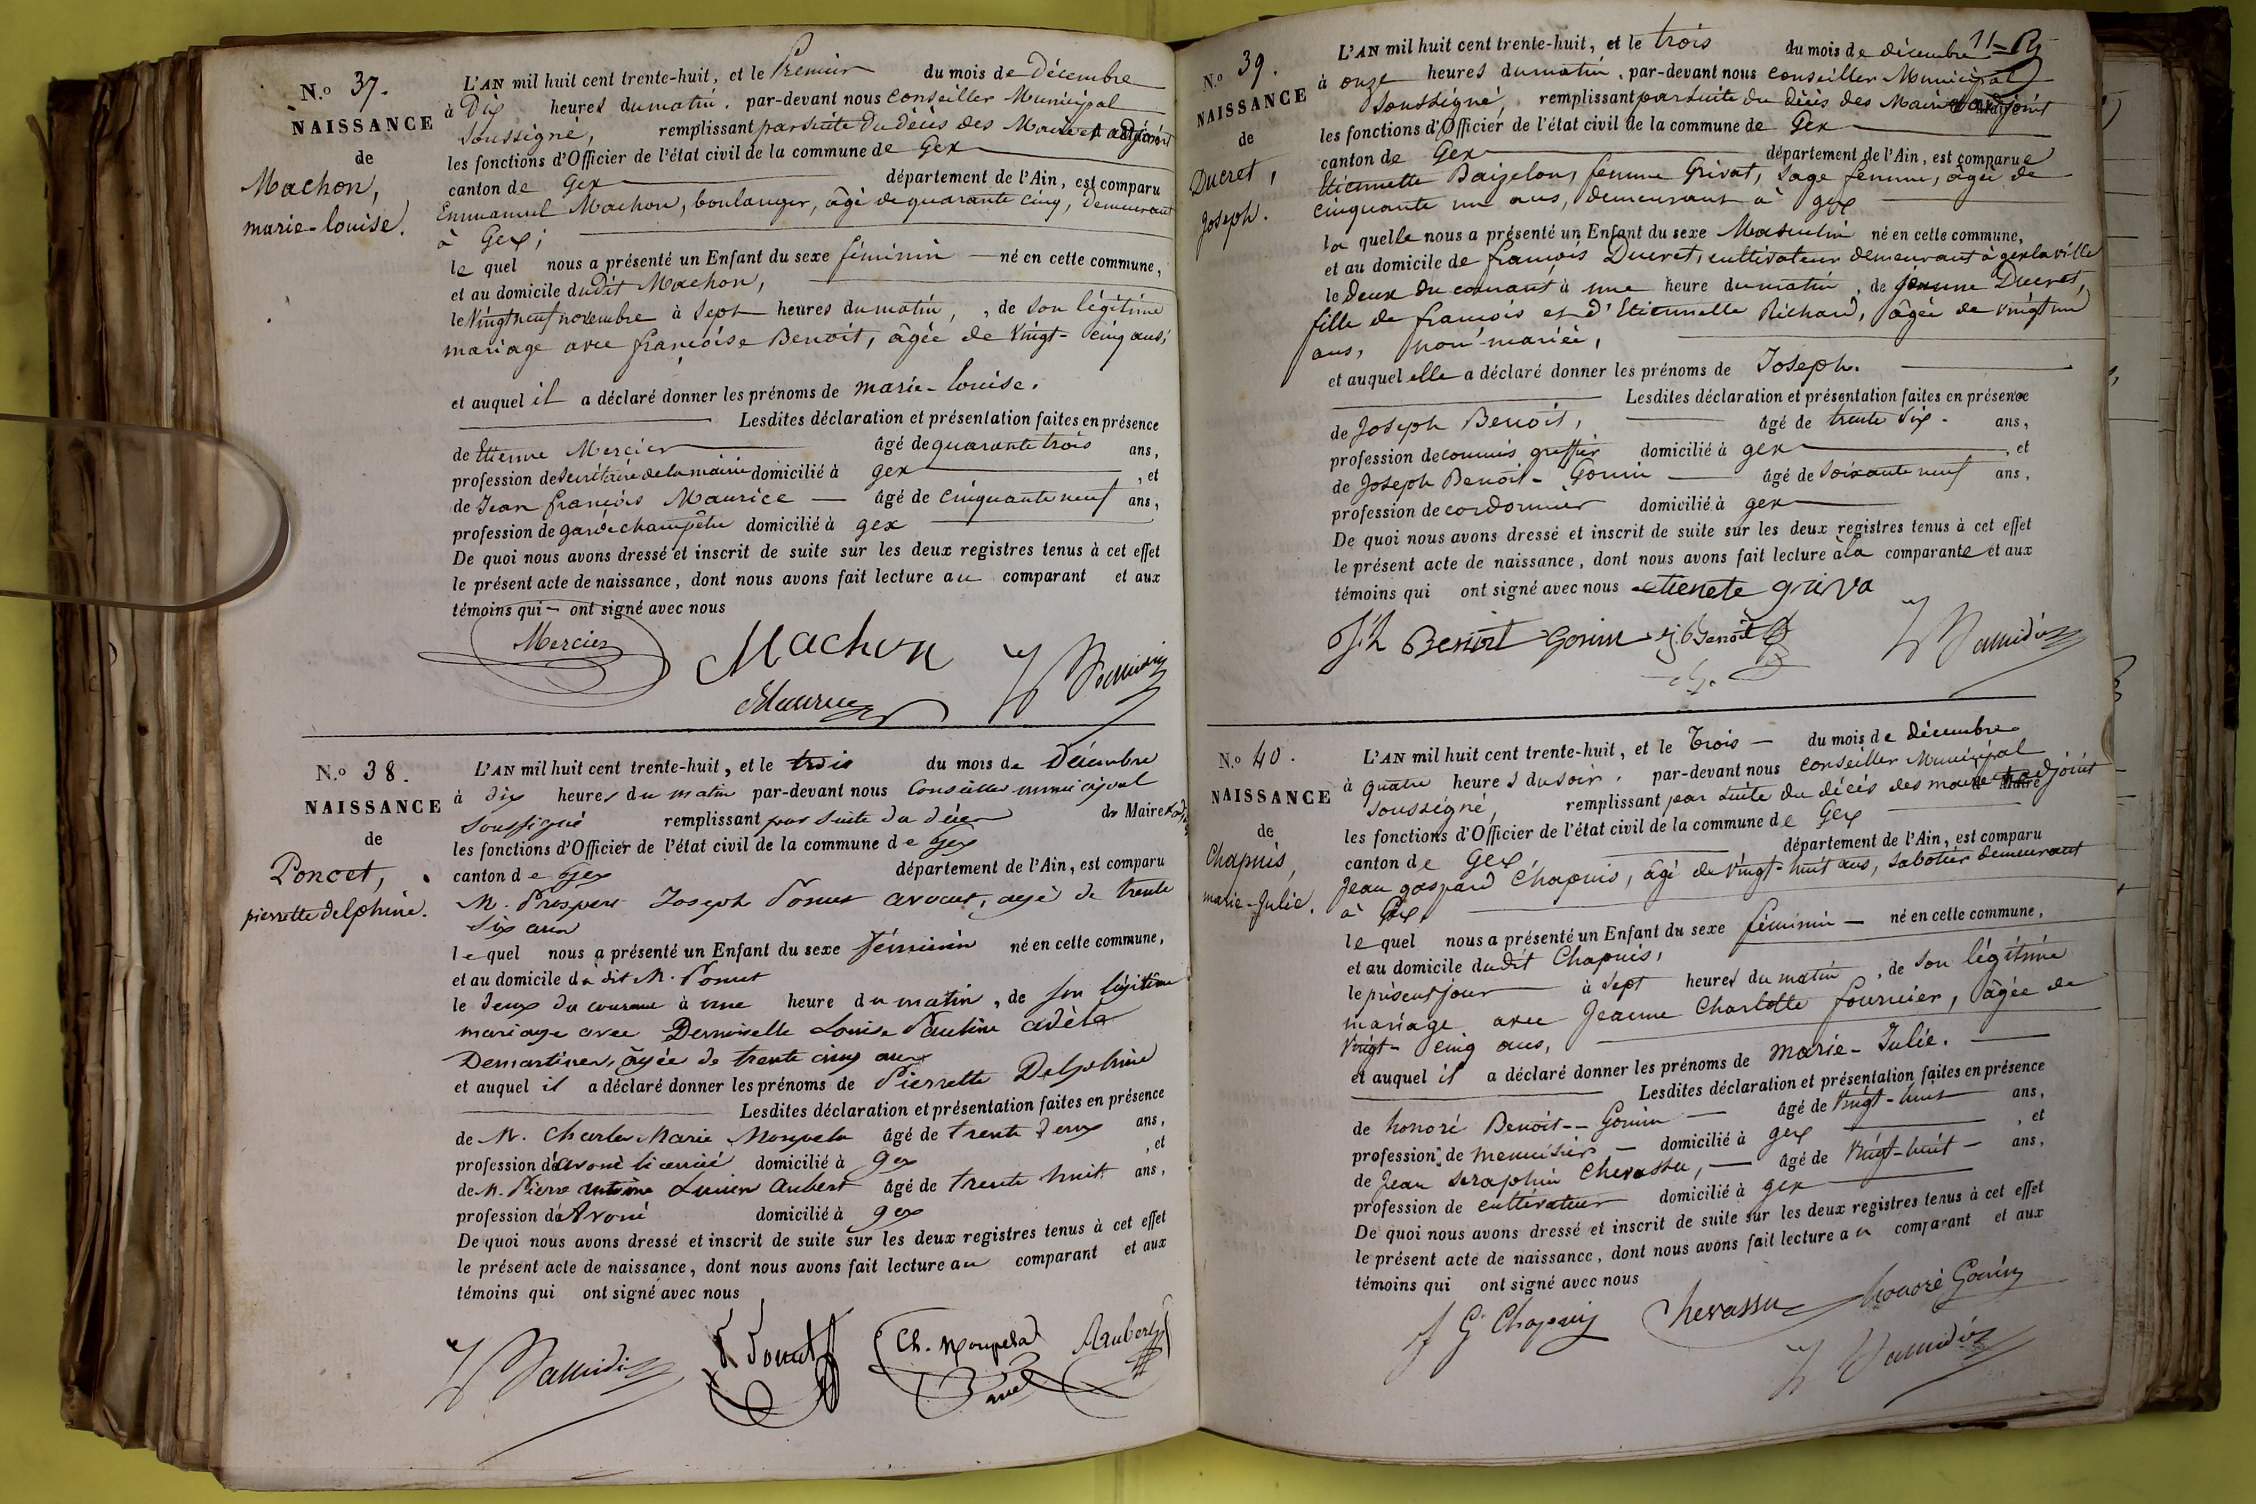 N.o 37.
NAISSANCE
de
Machon,
marie-louise.
L'AN mil huit cent trente-huit, et le Premier du mois de Décembre
à Dix heures du matin, par-devant nous conseiller Municipal
soussigné, remplissant par suite du décès des Maire et adjoint
les fonctions d'Officier de l'état civil de la commune de Gex
canton de Gex département de l'Ain, est comparu
Emmanuel Machon, boulanger, âgé de quarante cinq, demeurant
à Gex;
le quel nous a présenté un Enfant du sexe féminin né en cette commune,
et au domicile dudit Machon,
le Vingt neuf novembre à Sept heures du matin, de son légitime
mariage avec françoise Benoit, âgée de Vingt-cinq ans;
et auquel il a déclaré donner les prénoms de marie-louise.
Lesdites déclaration et présentation faites en présence
de Etienne Mercier âgé de quarante trois ans,
profession de Secrétaire de la mairie domicilié à gex, et
de Jean françois Maurice âgé de cinquante neuf ans,
profession de garde champêtre domicilié à gex
De quoi nous avons dressé et inscrit de suite sur les deux registres tenus à cet effet
le présent acte de naissance, dont nous avons fait lecture au comparant et aux
témoins qui ont signé avec nous
Mercier Machon
Maurice
N.o 38.
NAISSANCE
de
Poncet,
pierrette delphine.
L'AN mil huit cent trente-huit, et le trois du mois de Décembre
à dix heures du matin par-devant nous Conseiller municipal
soussigné remplissant par suite du décès des Maire
les fonctions d'Officier de l'état civil de la commune de Gex
canton de Gex département de l'Ain, est comparu
M. Prosper Joseph Poncet avocat, agé de trente
six ans
le quel nous a présenté un Enfant du sexe féminin né en cette commune,
et au domicile du dit M. Poncet
le deux du courant à une heure du matin, de son légitime
mariage avec Demoiselle Louise Pauline adèle
Demartines, âgée de trente cinq ans
et auquel il a déclaré donner les prénoms de Pierrette Delphine
Lesdites déclaration et présentation faites en présence
de M. Charles Marie âgé de trente deux ans,
profession d'avoué licencié domicilié à Gex, et
de M. Pierre antoine Lucien Aubert âgé de trente huit ans,
profession d'Avoué domicilié à gex
De quoi nous avons dressé et inscrit de suite sur les deux registres tenus à cet effet
le présent acte de naissance, dont nous avons fait lecture au comparant et aux
témoins qui ont signé avec nous
P. Poncet Aubert
11
N.o 39.
NAISSANCE
de
Ducret,
Joseph.
L'AN mil huit cent trente-huit, et le trois du mois de décembre
à onze heures du matin, par-devant nous conseiller Municipal
soussigné, remplissant par suite du décès des Maire et adjoint
les fonctions d'Officier de l'état civil de la commune de Gex
canton de Gex département de l'Ain, est comparue
Etiennette femme Grivat, Sage femme, âgée de
cinquante un ans, demeurant à gex
la quelle nous a présenté un Enfant du sexe Masculin né en cette commune,
et au domicile de françois Ducret, cultivateur demeurant à gex la ville
le deux du courant à une heure du matin, de jeanne Ducret,
fille de françois et d'Etiennette Richard, âgée de vingt un
ans, non mariée,
et auquel elle a déclaré donner les prénoms de Joseph.
Lesdites déclaration et présentation faites en présence
de Joseph Benoit, âgé de trente six ans,
profession de commis greffier domicilié à gex, et
de Joseph Benoit-Gonin âgé de soixante neuf ans,
profession de cordonnier domicilié à gex
De quoi nous avons dressé et inscrit de suite sur les deux registres tenus à cet effet
le présent acte de naissance, dont nous avons fait lecture à la comparante et aux
témoins qui ont signé avec nous etienete griva
Jh Benoit Gonin j. Benoit
N.o 40.
NAISSANCE
de
Chapuis,
marie-Julie.
L'AN mil huit cent trente-huit, et le Trois du mois de décembre
à quatre heures du soir, par-devant nous conseiller Municipal
soussigné, remplissant par suite du décès des maire et adjoint
les fonctions d'Officier de l'état civil de la commune de Gex
canton de Gex département de l'Ain, est comparu
Jean gaspard Chapuis, âgé de vingt-huit ans, sabotier demeurant
à Gex,
le quel nous a présenté un Enfant du sexe féminin né en cette commune,
et au domicile dudit Chapuis,
le présent jour à sept heures du matin, de son légitime
mariage avec Jeanne Charlotte fournier, âgée de
Vingt-cinq ans,
et auquel il a déclaré donner les prénoms de marie-Julie.
Lesdites déclaration et présentation faites en présence
de honoré Benoit-Gonin âgé de vingt-huit ans,
profession de menuisier domicilié à gex, et
de Jean seraphin Chevassu, âgé de Vingt-huit ans,
profession de cultivateur domicilié à gex
De quoi nous avons dressé et inscrit de suite sur les deux registres tenus à cet effet
le présent acte de naissance, dont nous avons fait lecture au comparant et aux
témoins qui ont signé avec nous
J G Chapuis Chevassu honoré Gonin